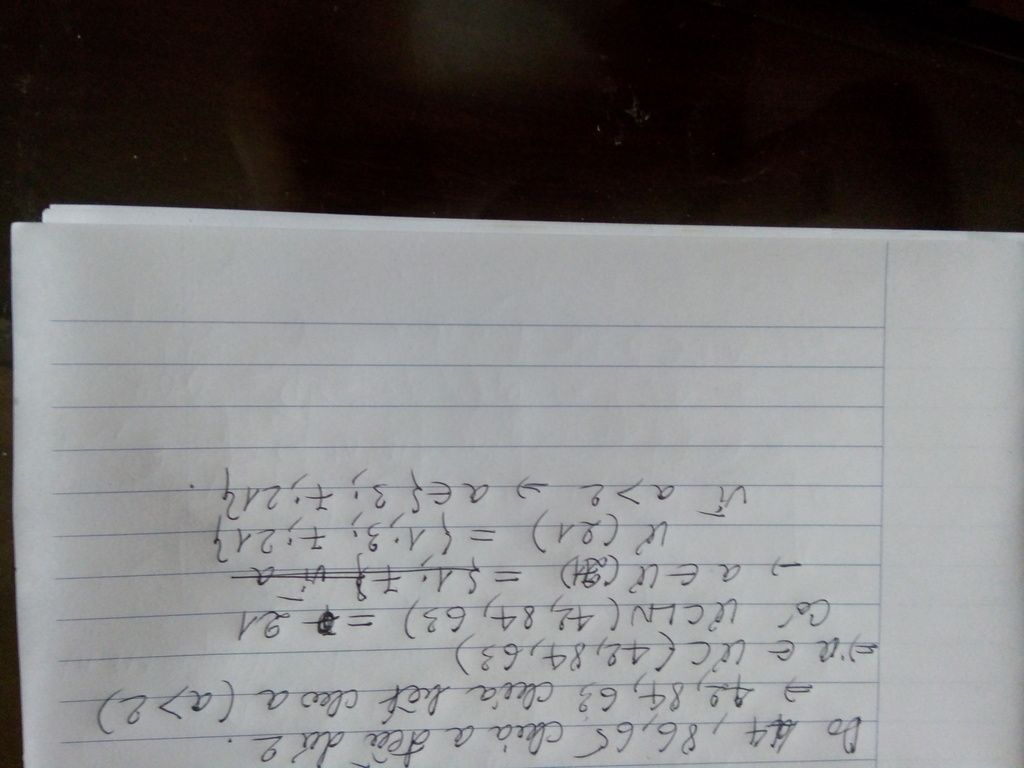 Do 44, 86, 65 chia a đều dư 2.
⇒ 42, 84, 63 chia hết cho a (a > 2)
⇒ a ∈ ƯC (42, 84, 63)
Có ƯCLN (42, 84, 63) = 21
→ a ∈ Ư (21) = {1; 7} vì a
Ư (21) = {1; 3; 7; 21}
Vì a > 2 ⇒ a ∈ {3; 7; 21}.